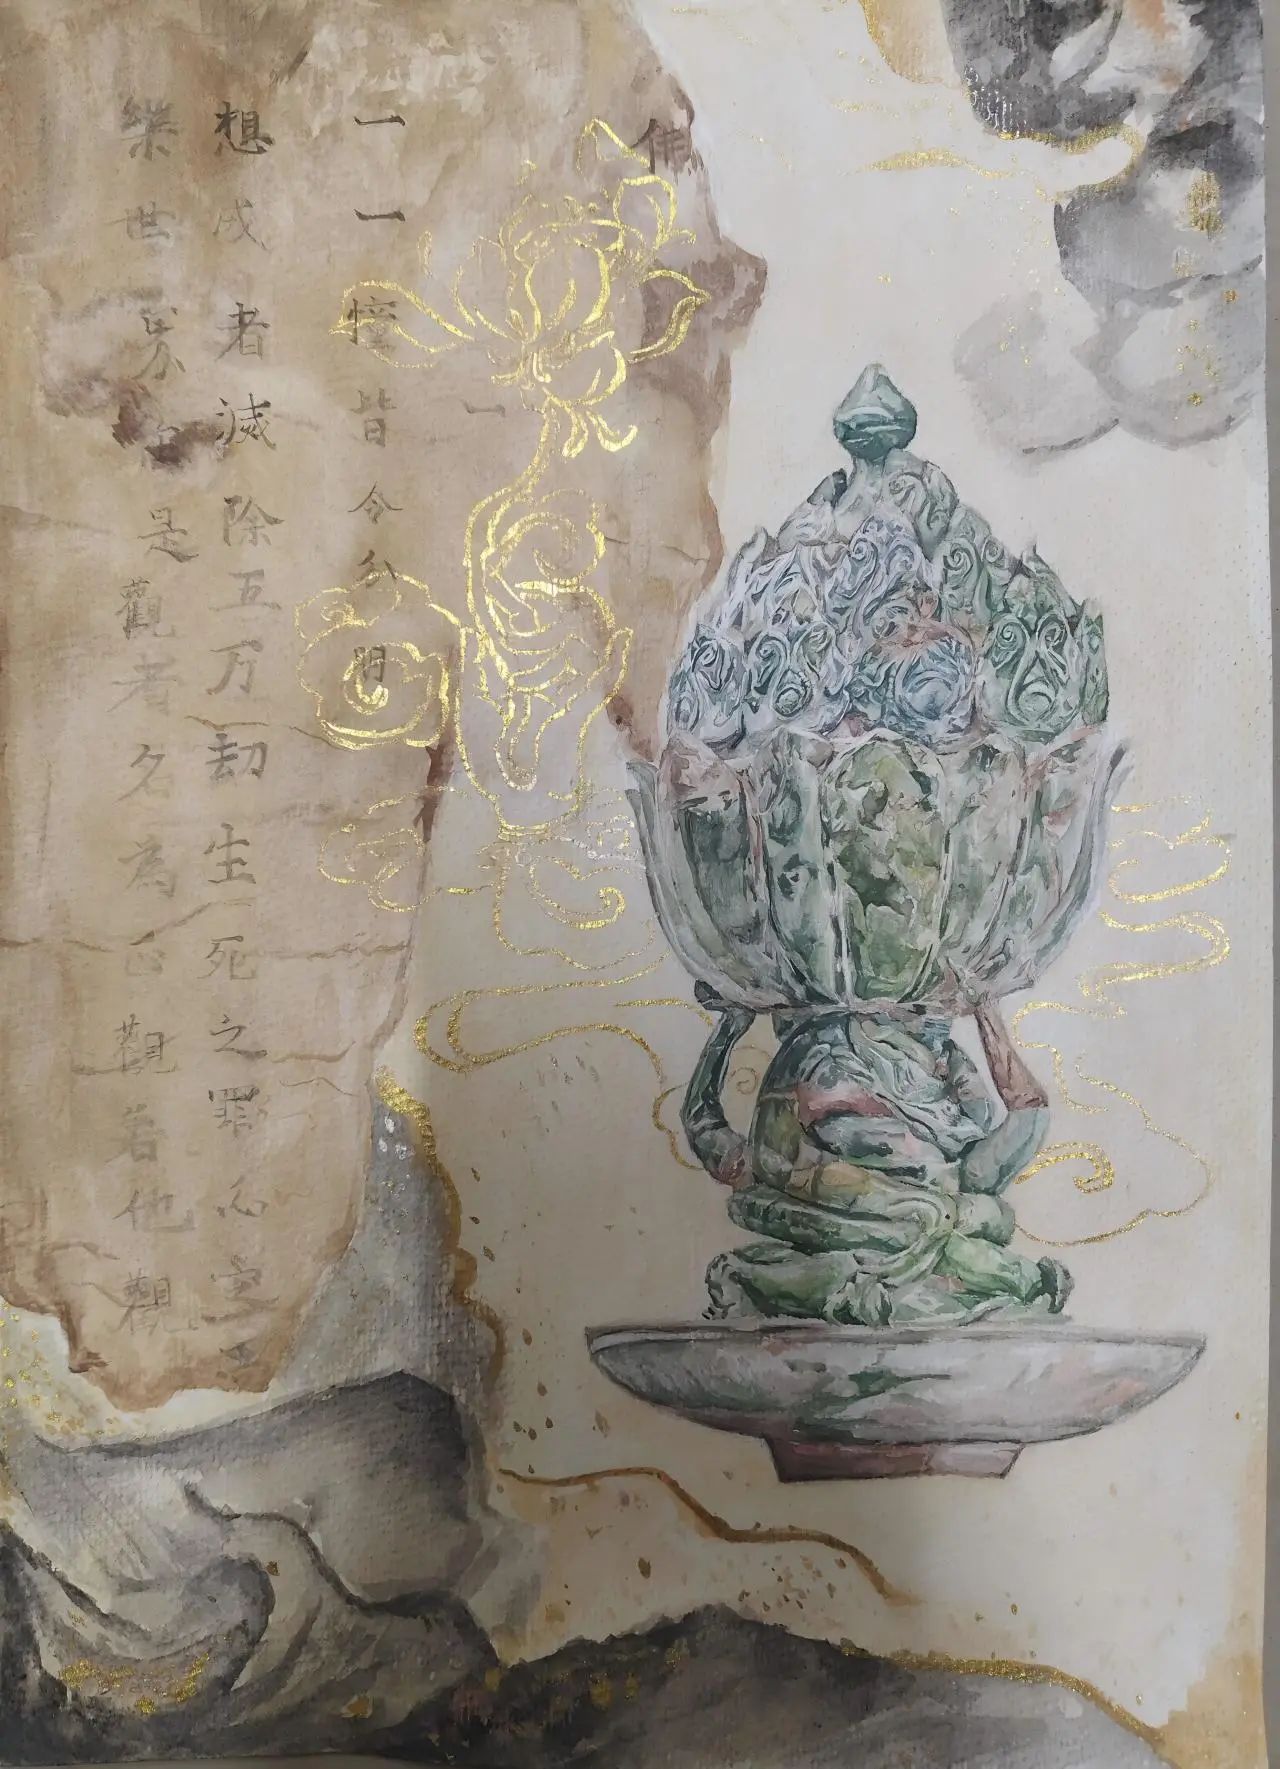 佛
一
一一憧皆令分明
想成者滅除五万劫生死之罪必定
樂世界 是觀者名為正觀若他觀